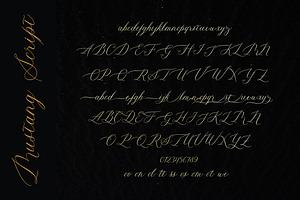 Mustang Script
abcdefghijklmnopqrstuvwxyz
ABCDEFGHIJKLMN
OPQRSTUVWXYZ
abcdefghijklmnopqrstuvwxyz
ABCDEFGHIJKLMN
OPQRSTUVWXYZ
0123456789